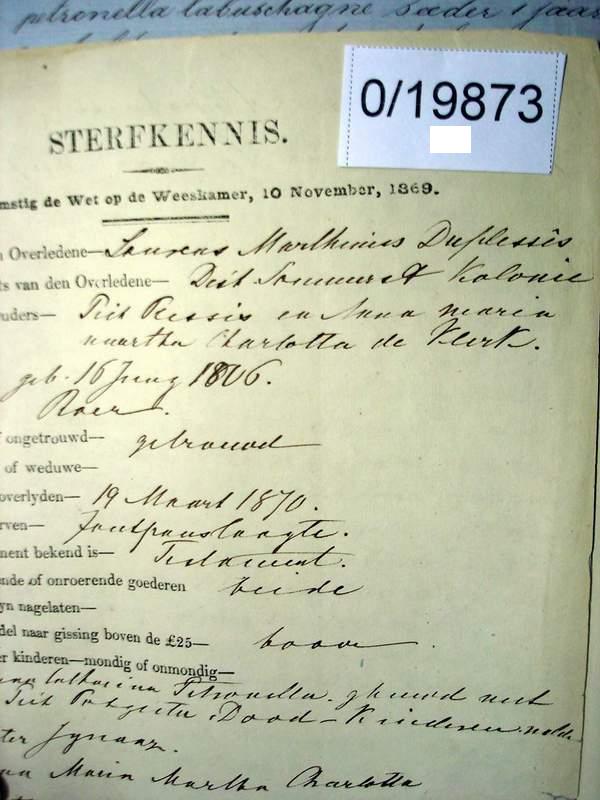 petronella labuschagne Vader 1 jaar
0/19873
STERFKENNIS.
mstig de Wet op de Weeskamer, 10 November, 1869.
n Overledene— Lourens Marthinus Duplessis
ts van den Overledene— Dist Sommerset Kolonie
uders— Piet Plessis en Anna maria
martha Charlotta de Klerk.
geb. 16 Juny 1806.
Boer.
f ongetrouwd— getrouwd
of weduwe—
overlyden— 19 Maart 1870.
rven— Zoutpanslaagte.
ment bekend is— Testament.
ende of onroerende goederen beide
yn nagelaten—
del naar gissing boven de £25— boven
er kinderen—mondig of onmondig—
Catharina Petronella. getrouwd met
Piet Dood – Kinderen
ter
na Maria Martha Charlotta